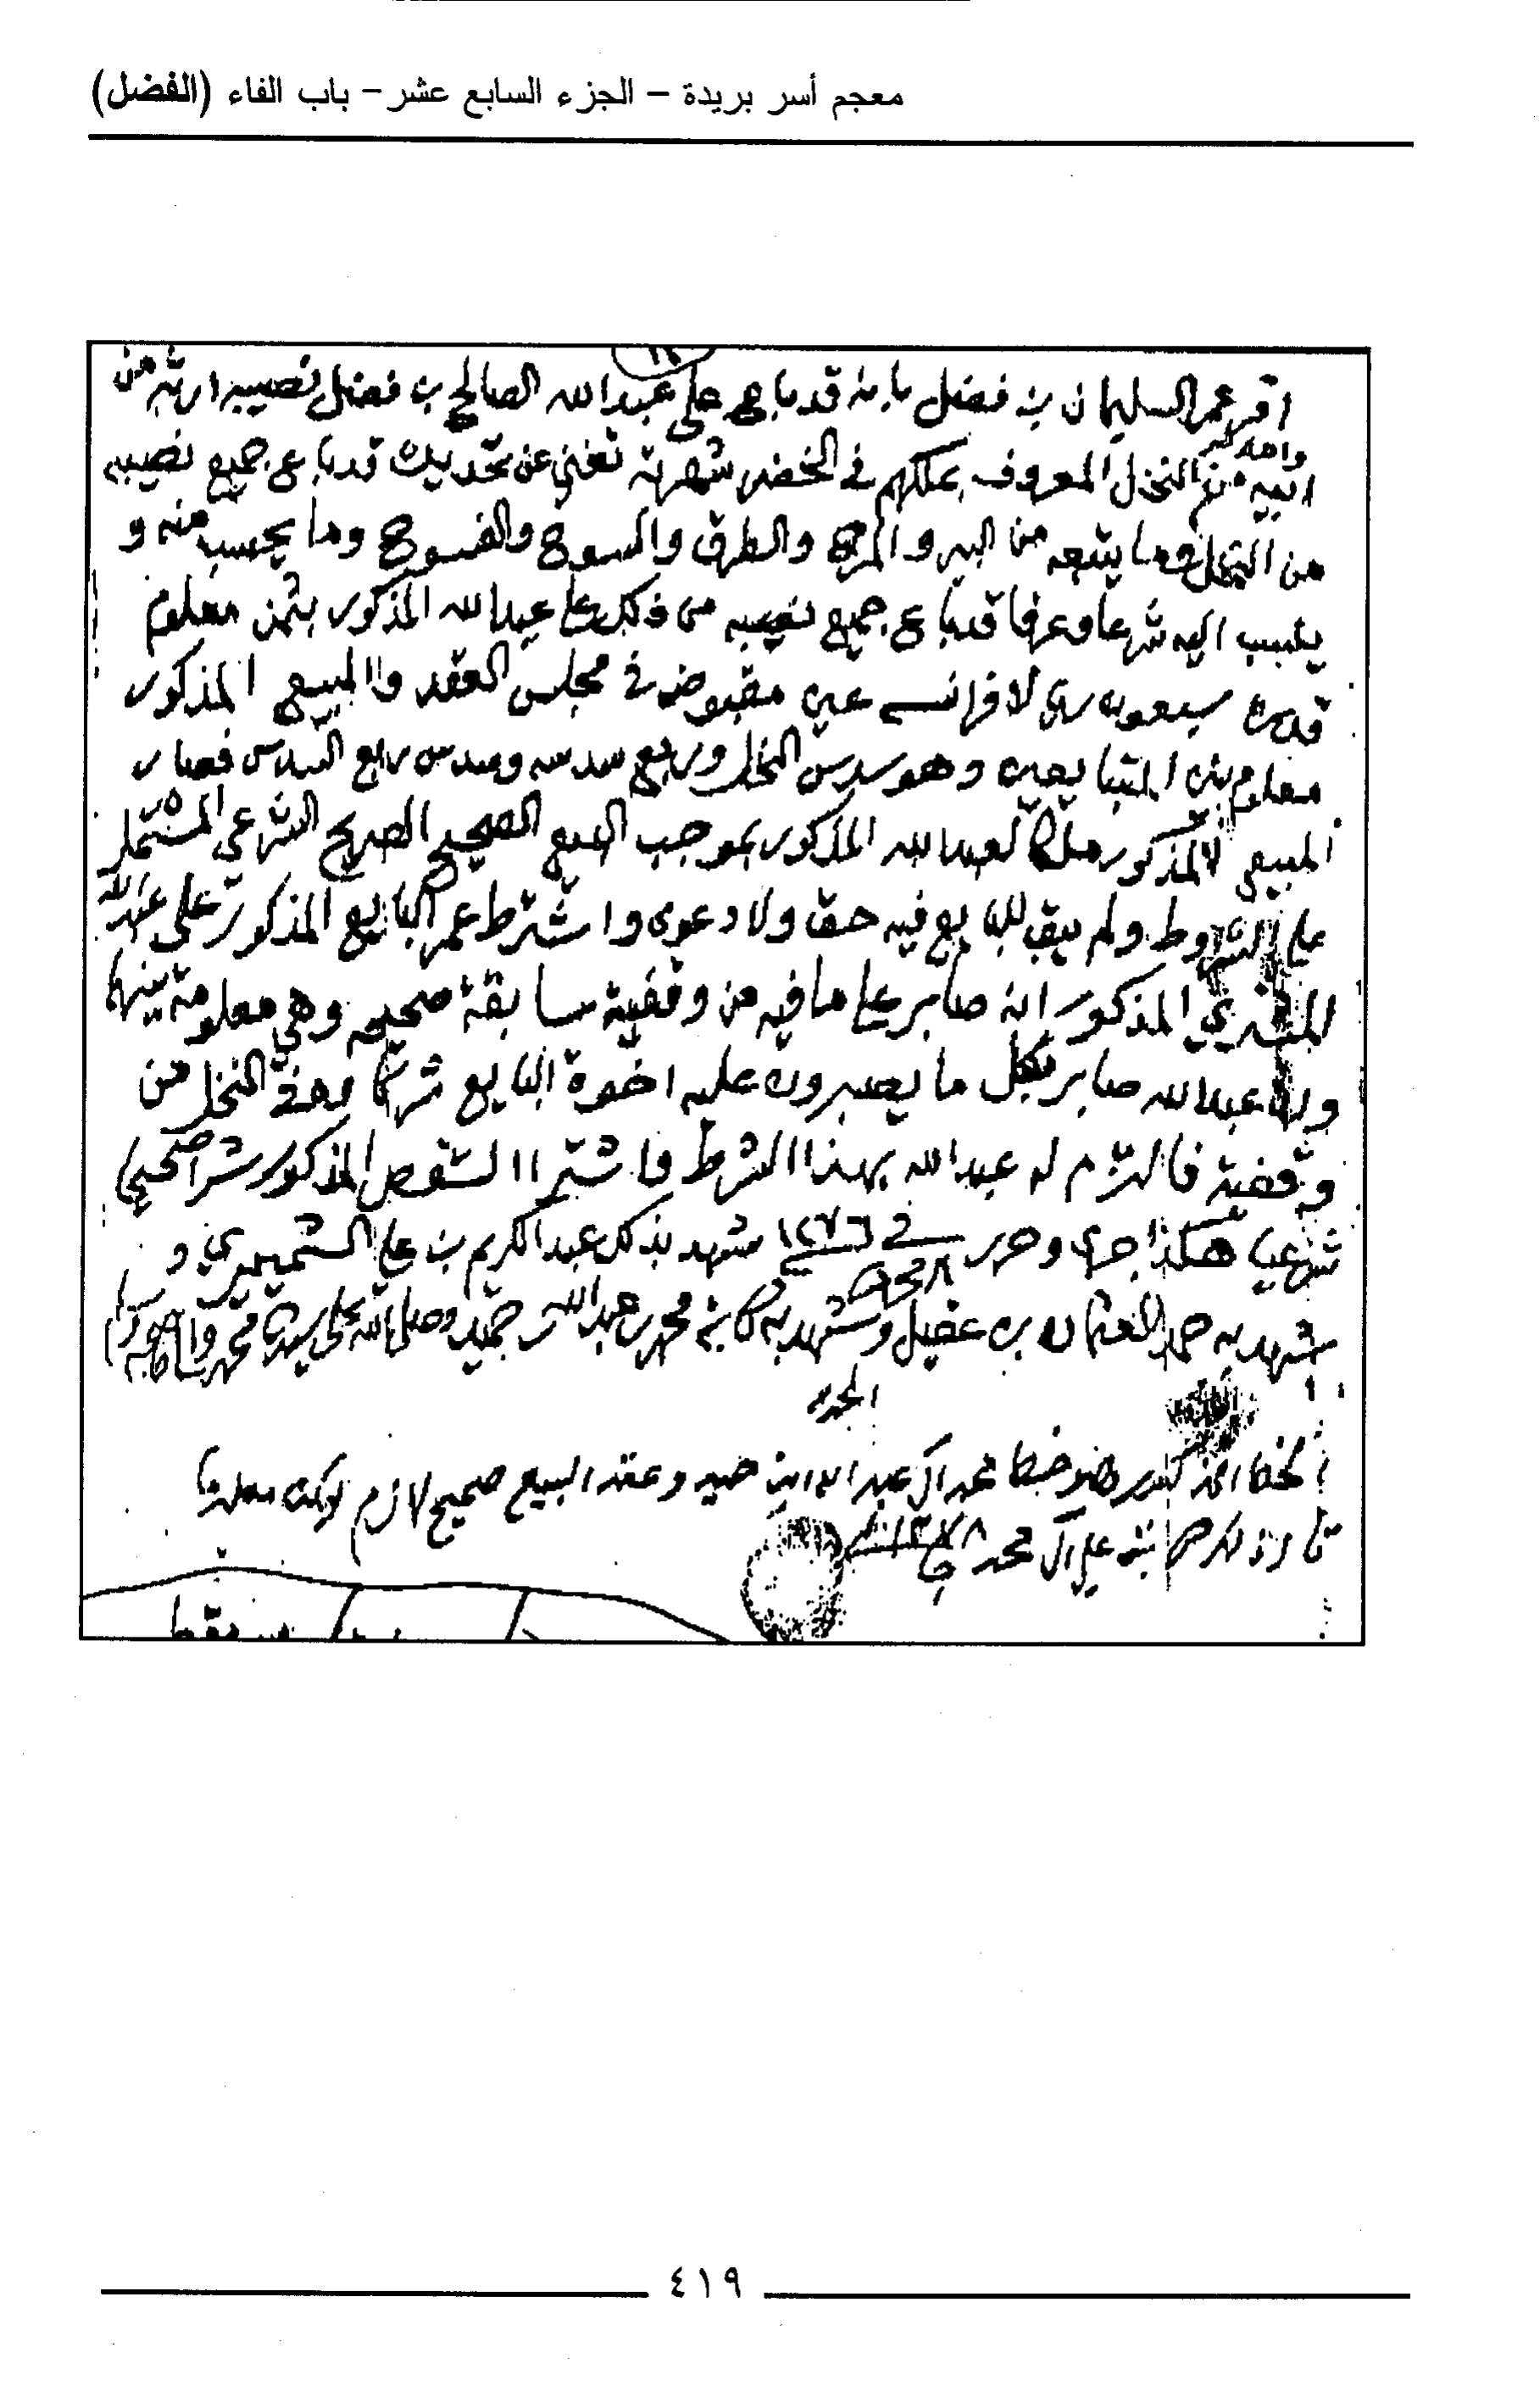 معجم أسر بريدة – الجزء السابع عشر – باب الفاء (الفضل)
اقر عمر السليمان بن فضل بانه قد باع على عبدالله الصالح بن فضل نصيبه ارثه من
وامه
ابيه من النخل المعروف بملكهم في الخضر شهرته تغني عن تحديده قد باع جميع نصيبه
من النخل وما يتبعه من البير والطرق والسوح والفسوح وما يحسب منه و
ينسب اليه شرعا وعرفا قد باع جميع نصيبه من ذلك على عبدالله المذكور بثمن معلوم
قدره سبعون ريالا فرانسه عين مقبوض في مجلس العقد والمبيع المذكور
معلوم بين المتبايعين وهو سدس النخل وربع سدسه وسدس ربع السدس فصار
المبيع المذكور ملكا لعبدالله المذكور بموجب البيع الصحيح الصريح الشرعي المشتمل
على الشروط ولم يبق للبايع فيه حق ولا دعوى واشترط عمر البايع المذكور على عبدالله
المشتري المذكور انه صابر على ما فيه من وقفية سابقة صحيحه وهي معلومة بينهما
وان عبدالله صابر بكل ما يصبرون عليه اخوة البايع شركا النخل من
وقفية فالتزم له عبدالله بهذا الشرط واشترا الشقص المذكور شرا صحيحا
شرعيا هكذا جرى وحرر في ١٢٧٦ شهد بذلك عبدالكريم بن علي الشميمري و
شهد به حمد العثمان بن عضيل وشهد به كاتبه محمد بن عبدالله بن حميد وصلى الله على سيدنا محمد
الحمد لله
الخط المذكور هو خط محمد آل عبدالله ابن حميد وعقد البيع صحيح لازم
قال ذلك كاتبه علي آل محمد
٤١٩